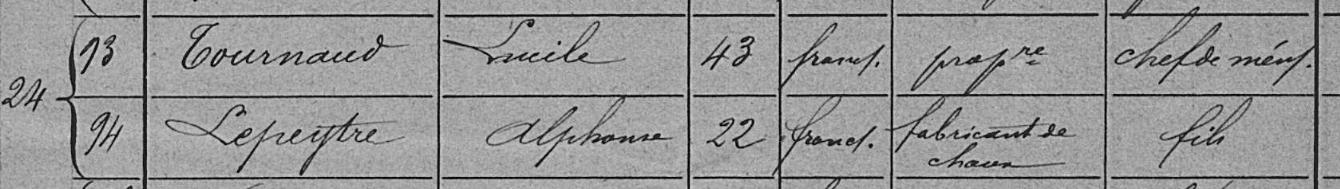 24
93 Tournaud Lucile 43 franç. propre chef de mén.
94 Lepeytre Alphonse 22 franç. fabricant de chaux fils